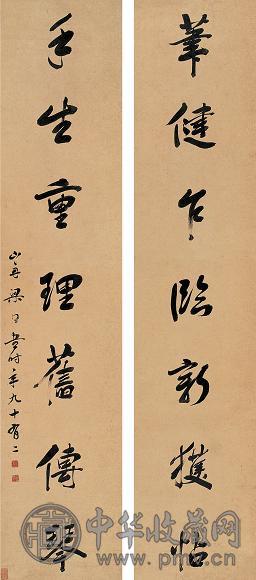 筆健乍臨新獲帖
手生重理舊傳琴
山舟梁同書時年九十有二
中华收藏网